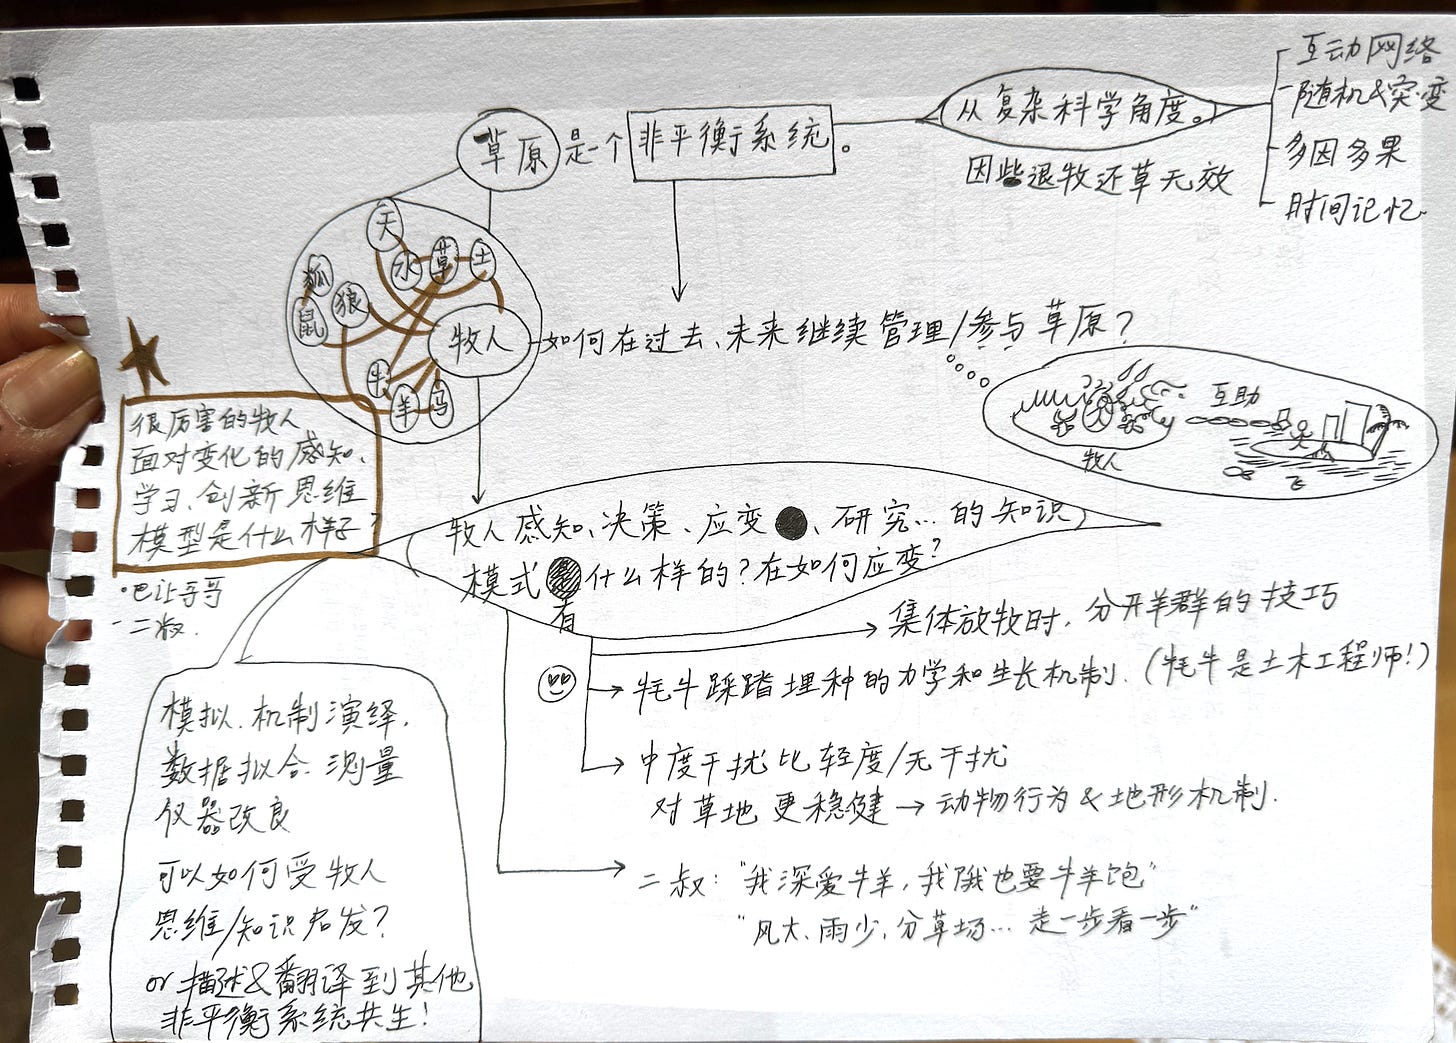 草原是一个非平衡系统。
从复杂科学角度。
因些退牧还草无效
互动网络
随机&突变
多因多果
时间记忆
天
水
草
土
狐
鼠
狼
牧人
牛
羊
马
如何在过去、未来继续管理/参与草原?
互助
牧人
很厉害的牧人
面对变化的感知、
学习、创新思维
模型是什么样子?
·巴让哥哥
-二叔.
牧人感知、决策、应变、研究...的知识
模式 什么样的?在如何应变?
有
集体放牧时,分开羊群的技巧
牦牛踩踏埋种的力学和生长机制.(牦牛是土木工程师!)
中度干扰比轻度/无干扰
对草地更稳健→动物行为&地形机制.
二叔:"我深爱牛羊,我饿也要牛羊饱"
"风大、雨少,分草场...走一步看一步"
模拟、机制演绎,
数据拟合.测量
仪器改良
可以如何受牧人
思维/知识启发?
or描述&翻译到其他
非平衡系统共生!